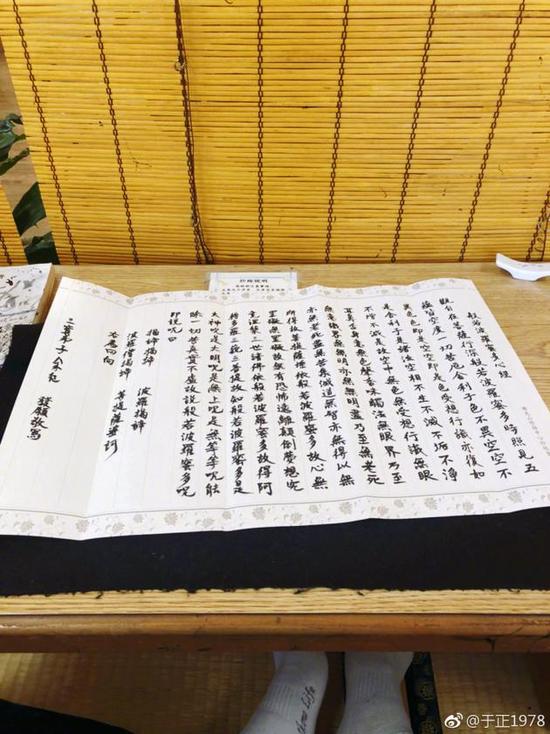 般若波羅蜜多心經
觀自在菩薩行深般若波羅蜜多時照見五
蘊皆空度一切苦厄舍利子色不異空空不
異色色即是空空即是色受想行識亦復如
是舍利子是諸法空相不生不滅不垢不淨
不增不減是故空中無色無受想行識無眼
耳鼻舌身意無色聲香味觸法無眼界乃至
無意識界無無明亦無無明盡乃至無老死
亦無老死盡無苦集滅道無智亦無得以無
所得故菩提薩埵依般若波羅蜜多故心無
罣礙無罣礙故無有恐怖遠離顛倒夢想究
竟涅槃三世諸佛依般若波羅蜜多故得阿
耨多羅三藐三菩提故知般若波羅蜜多是
大神咒是大明咒是無上咒是無等等咒能
除一切苦真實不虛故說般若波羅蜜多咒
即說咒曰
揭諦揭諦 波羅揭諦
波羅僧揭諦 菩提薩婆訶
回向
三寶弟子 發願敬寫
抄經說明
Life
@于正1978